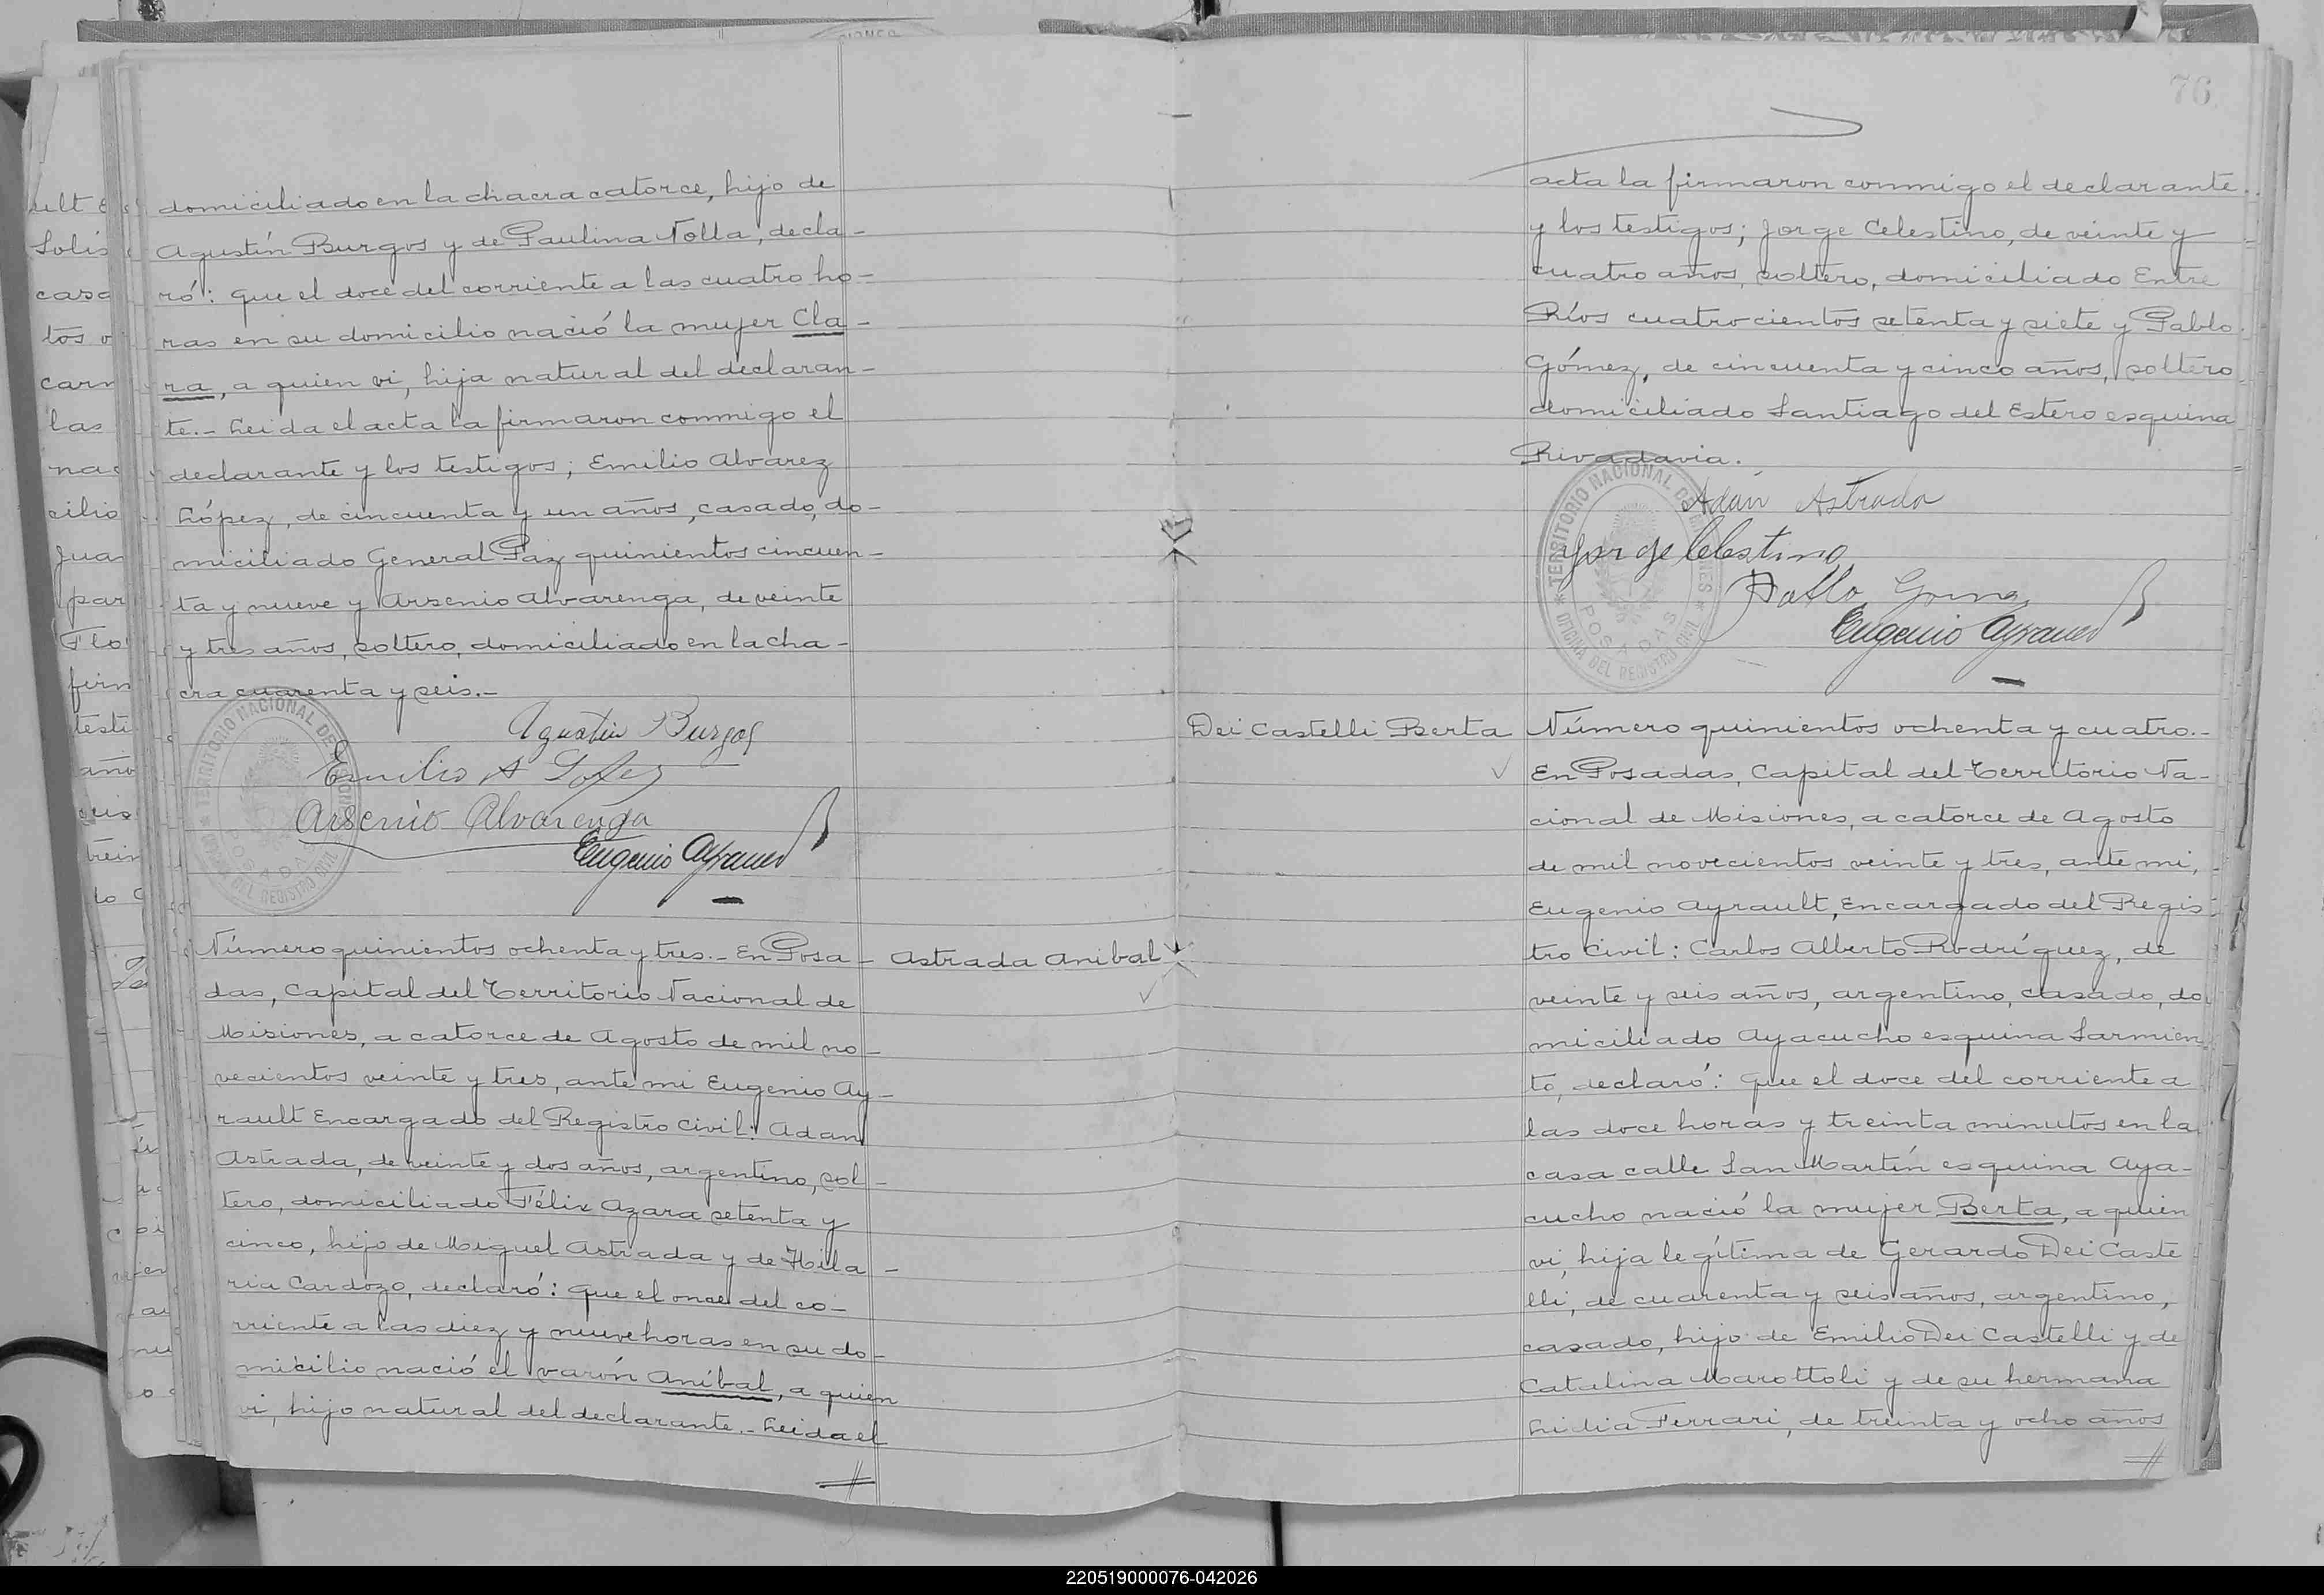 domiciliado en la chacra catorce, hijo de
Agustín Burgos y de Paulina Nolla, decla-
ró: que el doce del corriente a las cuatro ho-
ras en su domicilio nació la mujer Cla-
ra, a quien vi, hija natural del declaran-
te.- Leida el acta la firmaron conmigo el
declarante y los testigos; Emilio Alvarez
López, de cincuenta y un años, casado, do-
miciliado General Paz quinientos cincuen-
ta y nueve y Arsenio Alvarenga, de veinte
y tres años, soltero, domiciliado en la cha-
cra cuarenta y seis.-
Agustin Burgos
Emilio A Lopez
Arsenio Alvarenga
Eugenio Ayrault
TERRITORIO NACIONAL DE MISIONES
POSADAS
OFICINA DEL REGISTRO CIVIL
Número quinientos ochenta y tres.- En Posa-
Astrada Anibal
das, Capital del Territorio Nacional de
Misiones, a catorce de Agosto de mil no-
vecientos veinte y tres, ante mi Eugenio Ay-
rault Encargado del Registro Civil: Adan
Astrada, de veinte y dos años, argentino, sol-
tero, domiciliado Félix Azara setenta y
cinco, hijo de Miguel Astrada y de Hila-
ria Cardozo, declaró: que el once del co-
rriente a las diez y nueve horas en su do-
micilio nació el varón Aníbal, a quien
vi, hijo natural del declarante.- Leida el
76
acta la firmaron conmigo el declarante
y los testigos; Jorge Celestino, de veinte y
cuatro años, soltero, domiciliado Entre
Ríos cuatrocientos setenta y siete y Pablo
Gómez, de cincuenta y cinco años, soltero
domiciliado Santiago del Estero esquina
Rivadavia.
Adán Astrada
Jorge Celestino
Pablo Gomez
Eugenio Ayrault
TERRITORIO NACIONAL DE MISIONES
POSADAS
OFICINA DEL REGISTRO CIVIL
Dei Castelli Berta
Número quinientos ochenta y cuatro.-
En Posadas, Capital del Territorio Na-
cional de Misiones, a catorce de Agosto
de mil novecientos veinte y tres, ante mi,
Eugenio Ayrault, Encargado del Regis-
tro Civil: Carlos Alberto Rodríguez, de
veinte y seis años, argentino, casado, do-
miciliado Ayacucho esquina Sarmien-
to, declaró: que el doce del corriente a
las doce horas y treinta minutos en la
casa calle San Martín esquina Aya-
cucho nació la mujer Berta, a quien
vi, hija legítima de Gerardo Dei Caste-
lli, de cuarenta y seis años, argentino,
casado, hijo de Emilio Dei Castelli y de
Catalina Marottoli y de su hermana
Lidia Ferrari, de treinta y ocho años
220519000076-042026